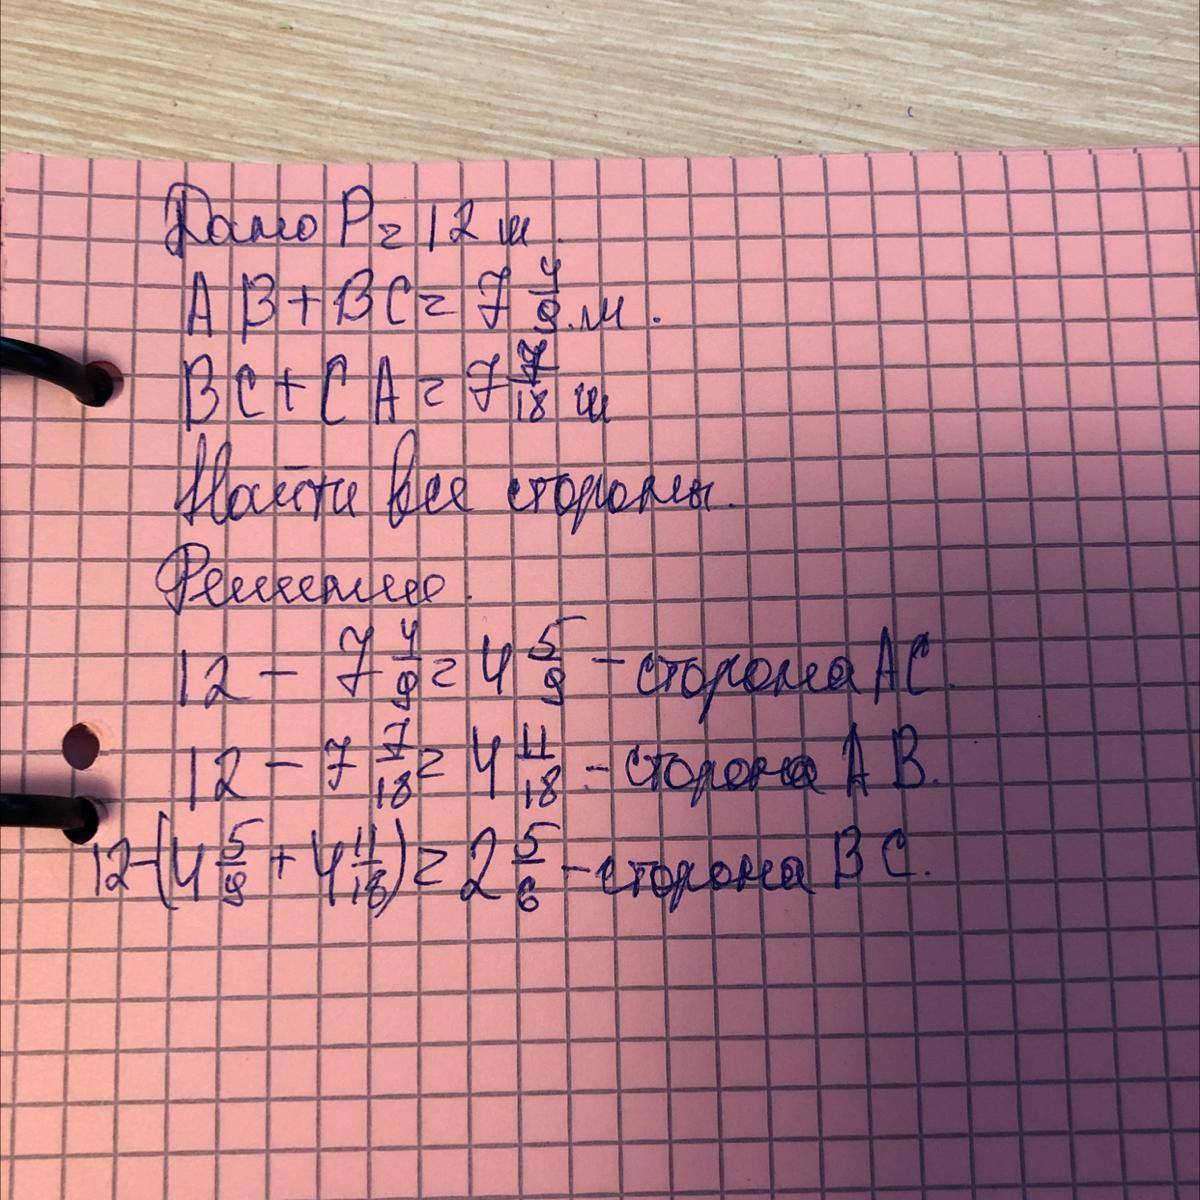 Дано P = 12 м.
AB + BC = 7 4/9 м.
BC + CA = 7 7/18 м
Найти все стороны.
Решение.
12 - 7 4/9 = 4 5/9 - сторона AC.
12 - 7 7/18 = 4 11/18 - сторона AB.
12-(4 5/9 + 4 11/18) = 2 5/6 - сторона BC.